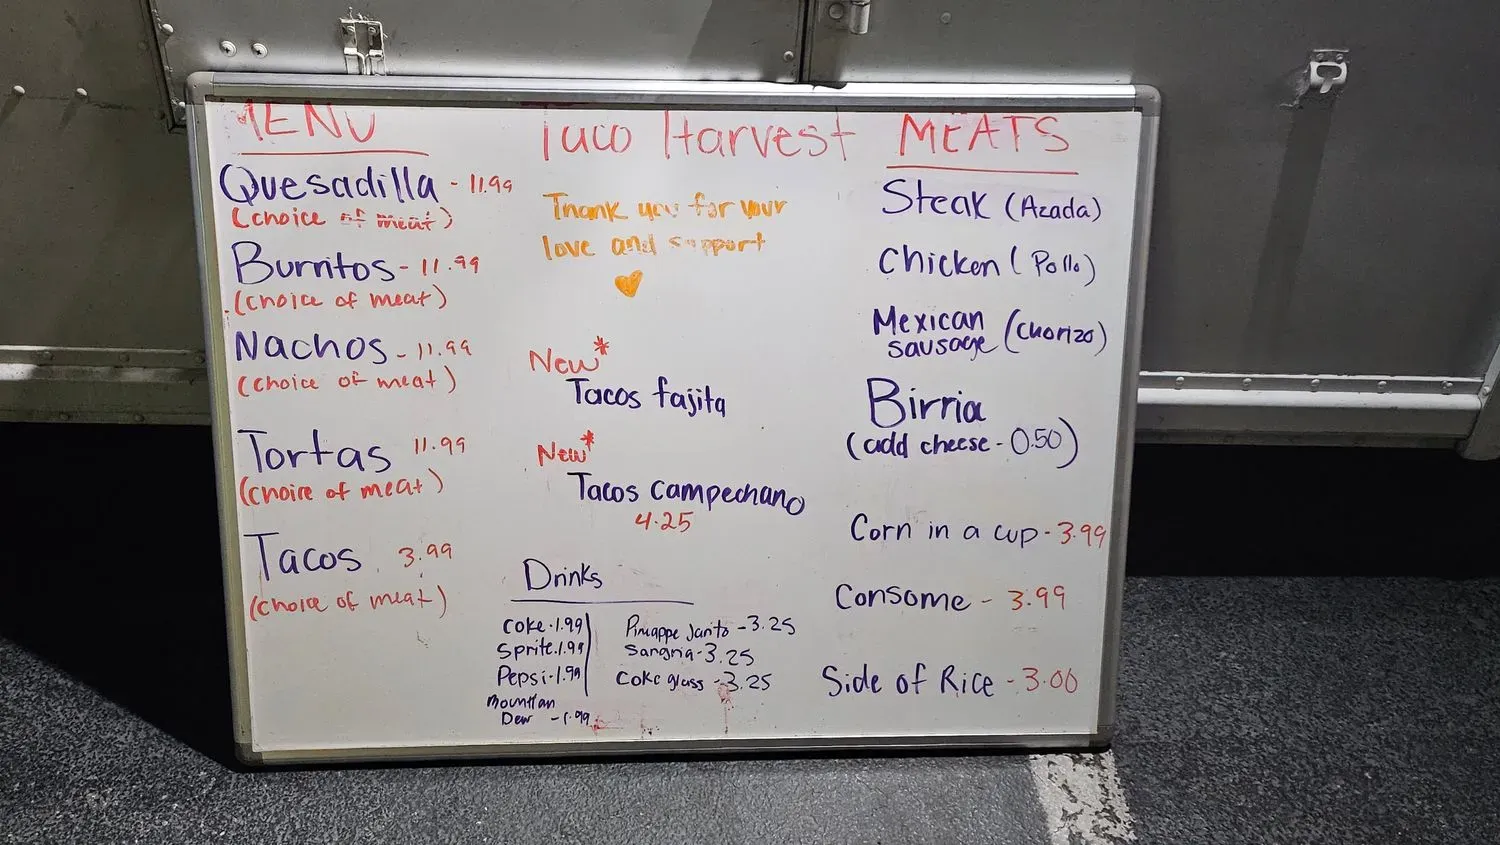 MENU
Quesadilla - 11.99
(choice of meat)
Burritos - 11.99
(choice of meat)
Nachos - 11.99
(choice of meat)
Tortas 11.99
(choice of meat)
Tacos 3.99
(choice of meat)
Taco Harvest
Thank you for your
love and support
New*
Tacos fajita
New*
Tacos campechano
4.25
Drinks
Coke - 1.99
Sprite - 1.99
Pepsi - 1.99
Mountian
Dew - 1.99
Pineappe Jarito - 3.25
Sangria - 3.25
Coke glass - 3.25
MEATS
Steak (Azada)
Chicken (Pollo)
Mexican
sausage (Chorizo)
Birria
(add cheese - 0.50)
Corn in a cup - 3.99
Consome - 3.99
Side of Rice - 3.00